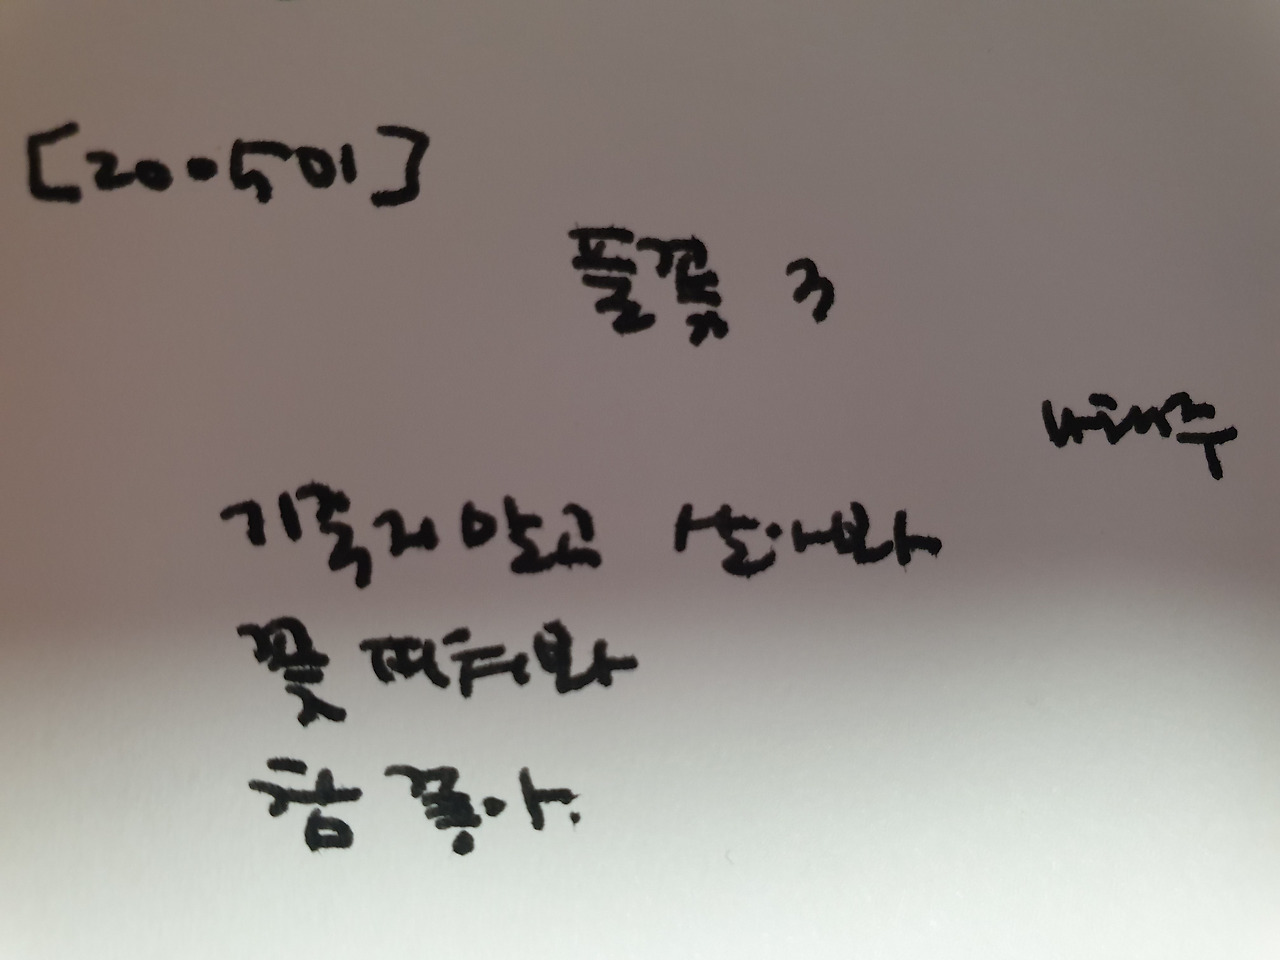 [20·501]
풀꽃 3
나태주
기죽지 말고 살아봐
꽃 피워봐
참 좋아.